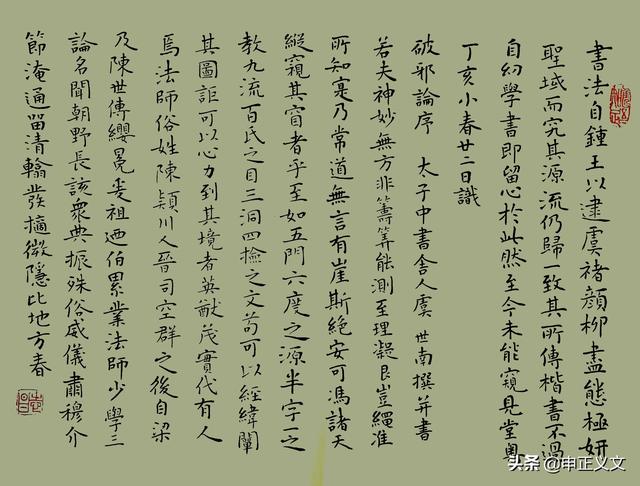 書法自鍾王以逮虞褚顏柳盡態極妍
聖域而究其源流仍歸一致其所傳楷書不過
自幼學書即留心於此然至今未能窺見堂奧
丁亥小春廿二日識
破邪論序 太子中書舍人虞 世南撰并書
若夫神妙無方非籌筭能測至理凝豈繩准
所知寔乃常道無言有崖斯絕安可馮諸天
縱窺其窅者乎至如五門六度之源半字一之
教九流百氏之目三洞四檢之文苟可以經緯闡
其圖詎可以心力到其境者英猷茂實代有人
焉法師俗姓陳穎川人晉司空群之後自梁
及陳世傳纓冕爰祖迺伯累業法師少學三
論名聞朝野長該衆典振殊俗威儀肅穆介
節淹通留清翰發摘微隱比地方春
头条 @申正义文